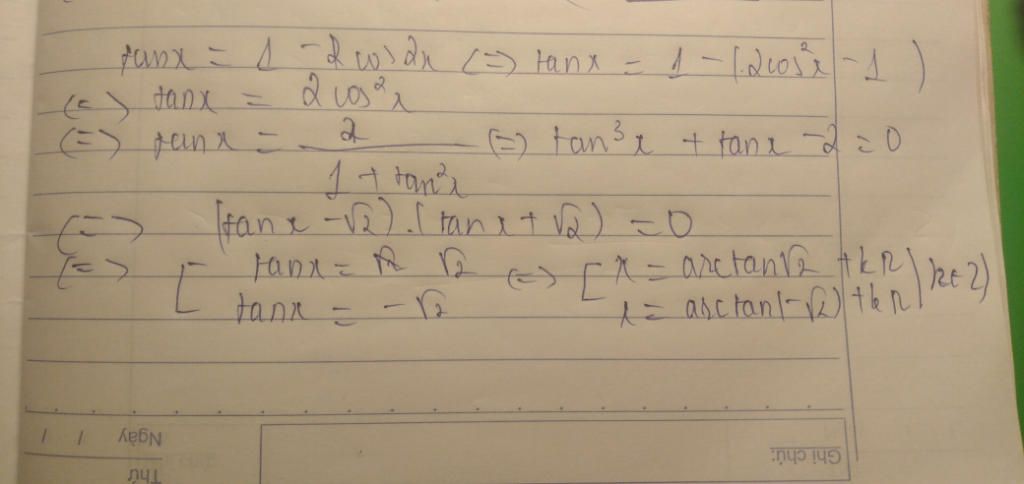 tanx = 1 - 2cos2x <=> tanx = 1 - (2cos²x - 1)
<=> tanx = 2cos²x
<=> tanx = 2 / (1 + tan²x) <=> tan³x + tanx - 2 = 0
<=> (tanx - √2).(tanx + √2) = 0
<=> [ tanx = √2 √2 <=> [ x = arctan√2 + kπ
tanx = -√2 x = arctan(-√2) + kπ (k∈Z)
Ghi chú:
Ngày / /
Thứ